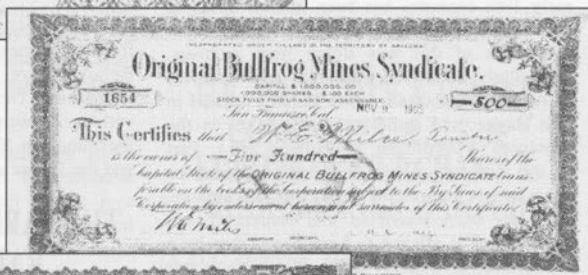 INCORPORATED UNDER THE LAWS OF THE TERRITORY OF ARIZONA
Original Bullfrog Mines Syndicate.
CAPITAL $ 1,000,000.00
1,000,000 SHARES $ 1.00 EACH
STOCK FULLY PAID UP AND NON-ASSESSABLE.
1654
500
San Francisco, Cal. NOV
This Certifies that W. E. Miles
is the owner of Five Hundred Shares of the
Capital Stock of the ORIGINAL BULLFROG MINES SYNDICATE trans-
ferable on the books of the Corporation subject to the By Laws of said
Corporation by endorsement hereon and surrender of this Certificate